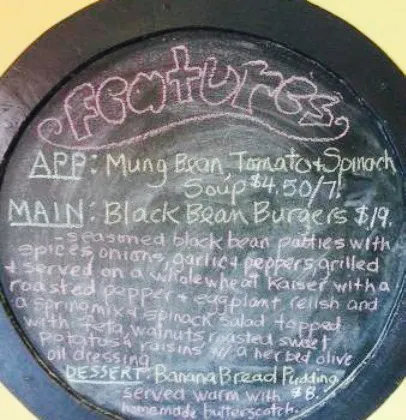 Features
APP: Mung Bean, Tomato + Spinach
Soup $4.50/7.
MAIN: Black Bean Burgers $19.
- seasoned black bean patties with
spices, onions, garlic + peppers grilled
+ served on a whole wheat kaiser with a
roasted pepper + eggplant relish and
a spring mix + spinach salad topped
with feta, walnuts, roasted sweet
potatos + raisins w/ a herbed olive
oil dressing
DESSERT: Banana Bread Pudding
served warm with $8.
homemade butterscotch.